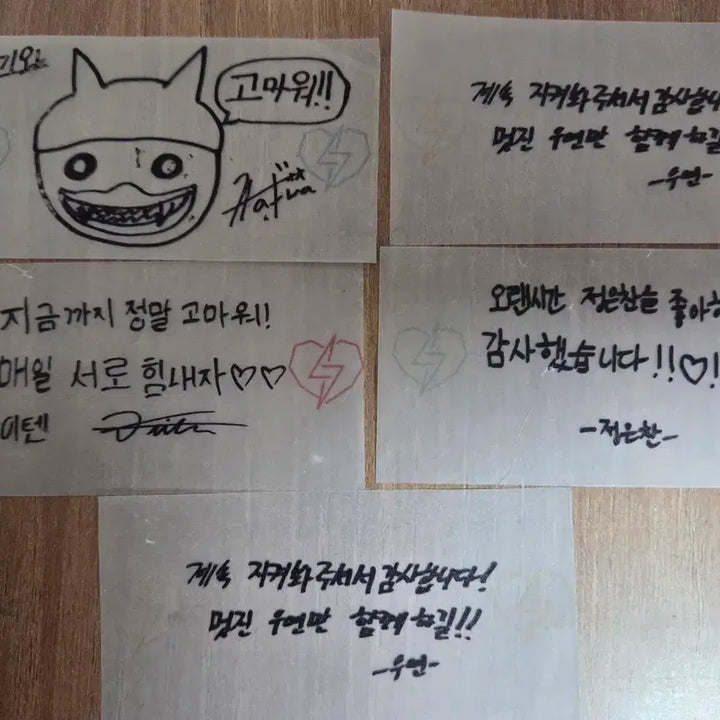 고마워!!
계속 지켜봐주셔서 감사합니
멋진 우연만 함께 하길
-우연-
지금까지 정말 고마워!
매일 서로 힘내자♡♡
이텐
오랜시간 정은찬을 좋아하
감사했습니다!!♡!
-정은찬-
계속 지켜봐주셔서 감사합니다!
멋진 우연만 함께 하길!!
-우연-